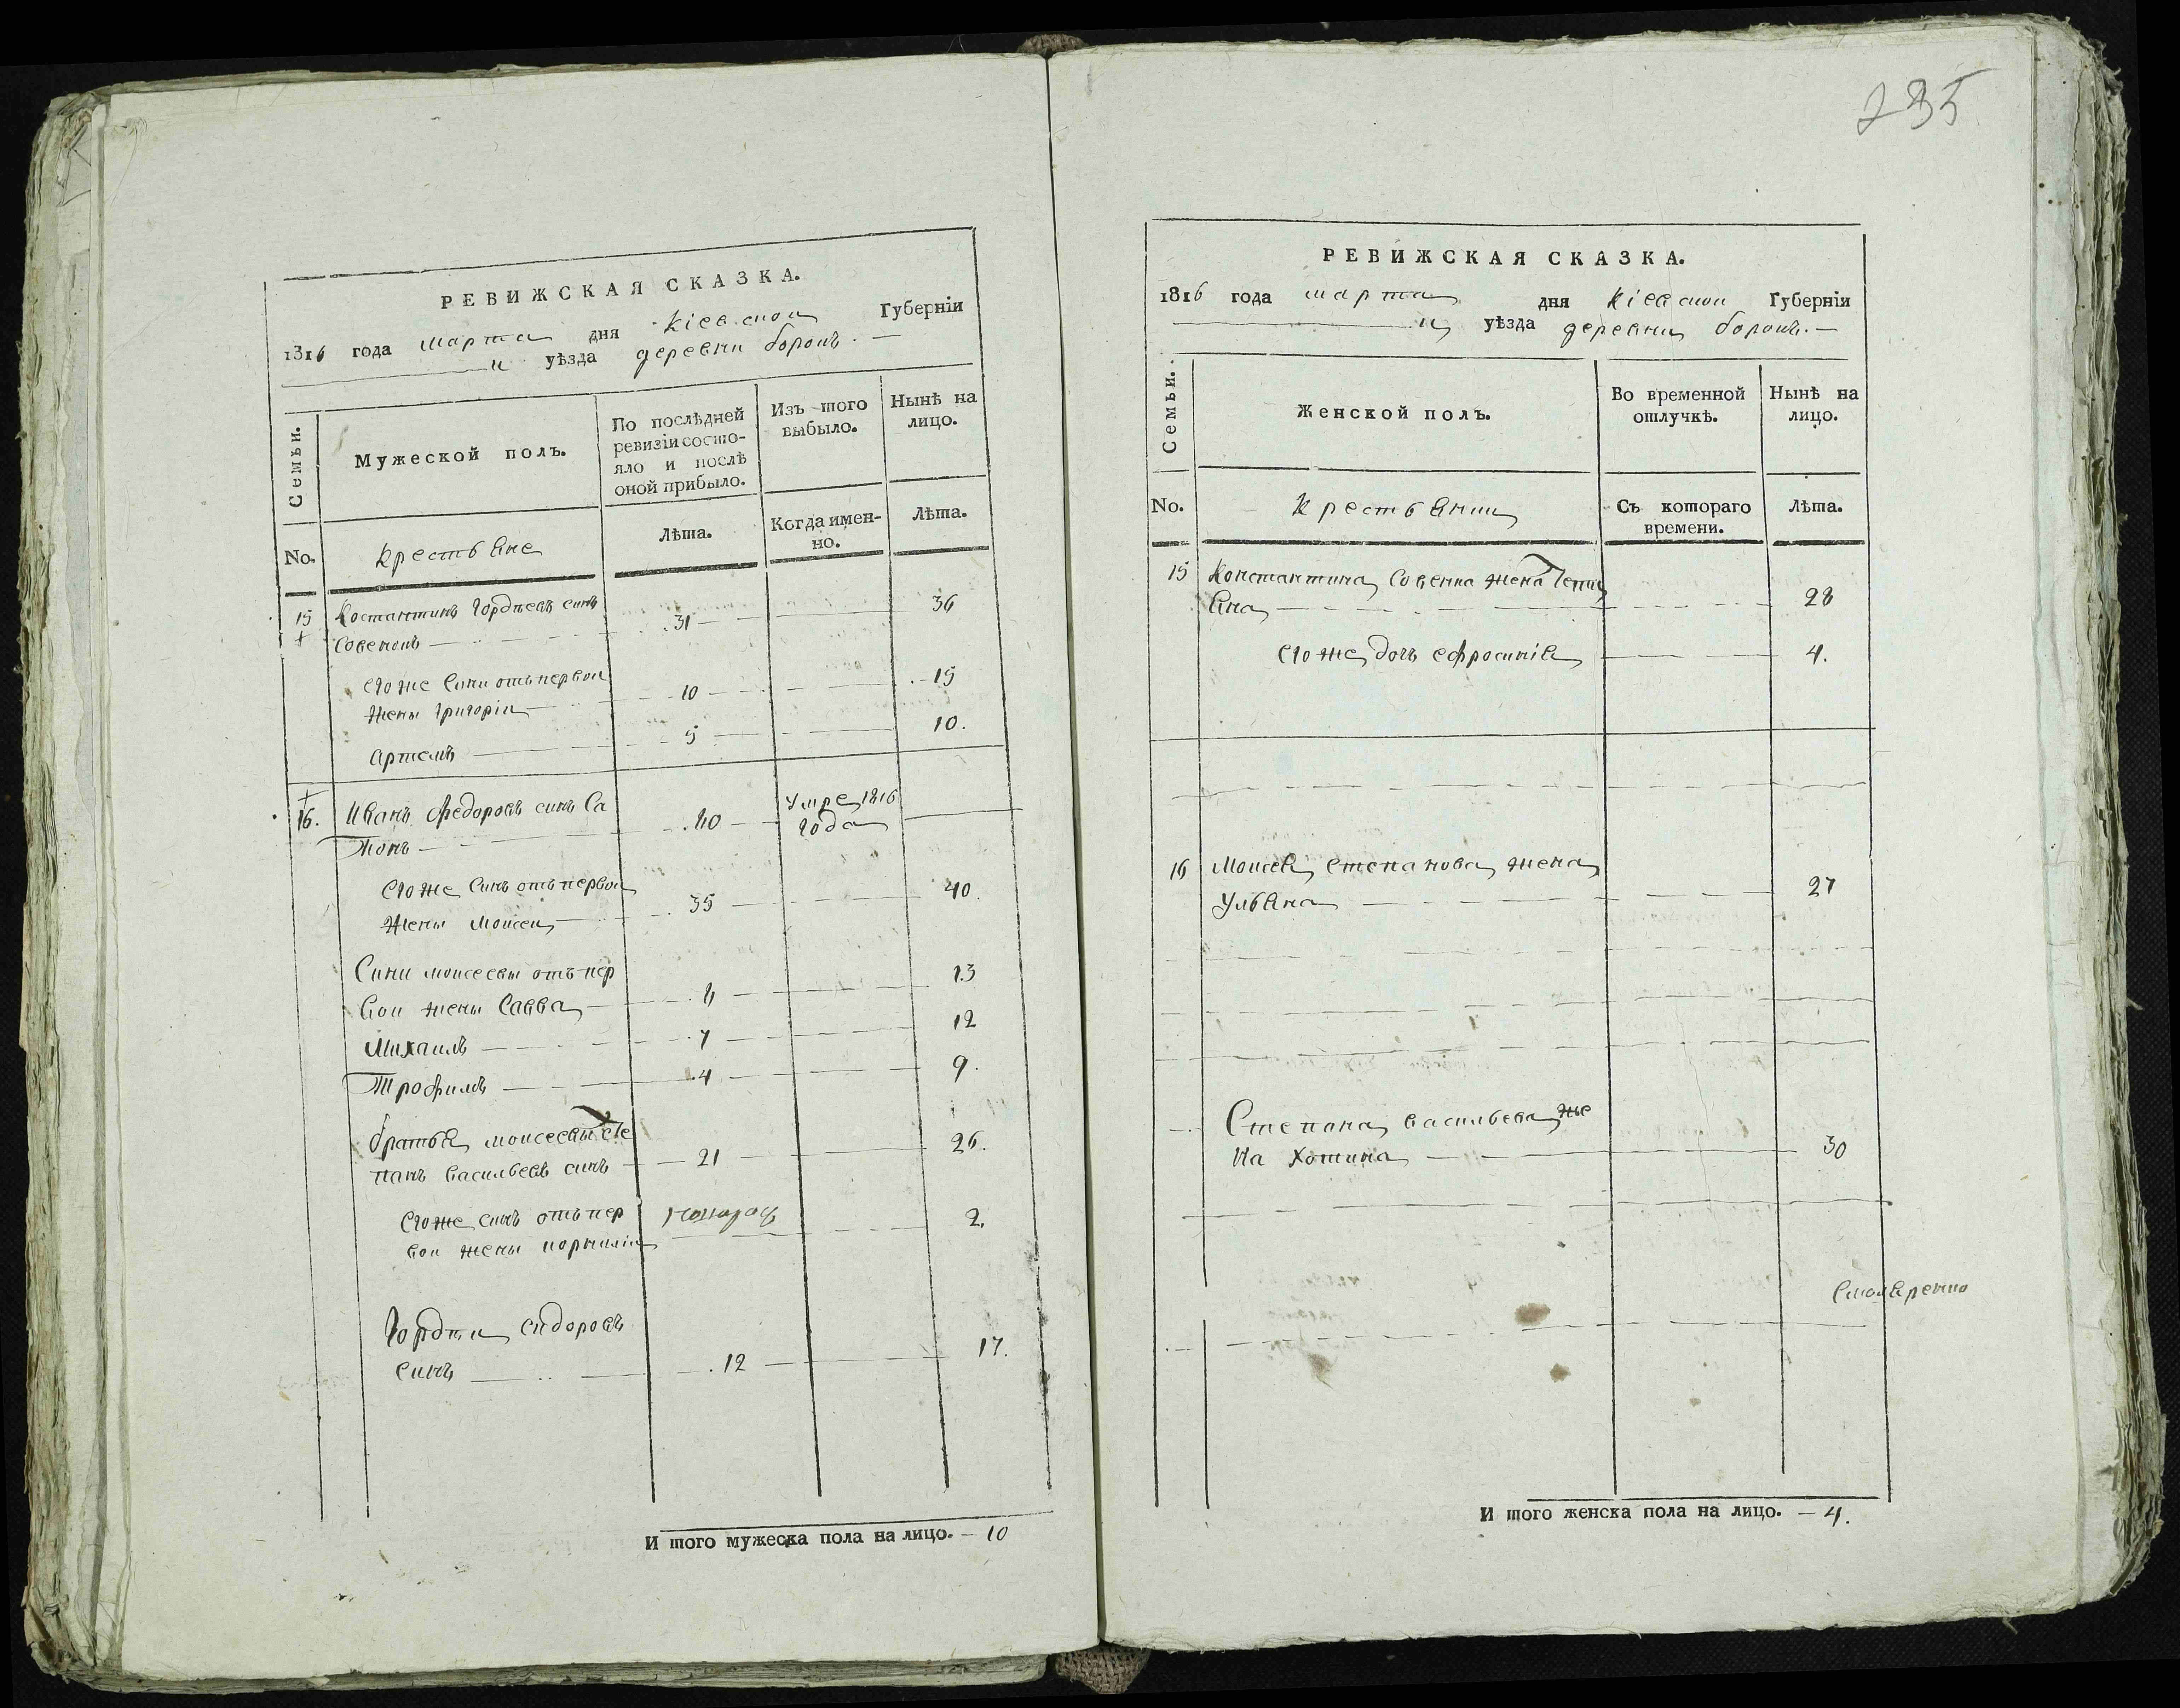 235
РЕВИЖСКАЯ СКАЗКА.
1816 года марта дня Кіевской Губерніи
уѣзда деревни борокъ. —
Семьи.
Мужеской полъ.
По послѣдней ревизіи состояло и послѣ оной прибыло.
Изъ того выбыло.
Нынѣ на лицо.
No.
крестьяне
Лѣта.
Когда именно.
Лѣта.
15 Костантинъ Гордѣевъ синъ
Совенокъ — 31 — 36
єгоже сини отъ первой
жены Григорій — 10 — 15
Артемъ — 5 — 10.
16. Иванъ Федоровъ синъ Са
умре 1816
тонъ — 40 — года
єгоже синъ отъ первой
жены Моисей — 35 — 40.
Сини моисеевы отъ пер
вои жены Савва — 8 — 13
Михаилъ — 7 — 12
Трофимъ — 4 — 9.
братья моисеевы Сте
панъ васильевъ синъ — 21 — 26.
єгоже синъ отъ пер
вои жены корнилій — 2.
Гордѣй сидоровъ
синъ — 12 — 17.
И того мужеска пола на лицо. — 10
РЕВИЖСКАЯ СКАЗКА.
1816 года марта дня Кіевской Губерніи
уѣзда деревни борокъ. —
Семьи.
Женской полъ.
Во временной отлучкѣ.
Нынѣ на лицо.
No.
крестьянки
Съ котораго времени.
Лѣта.
15 Константина Совенка жена
яна — 28
єгоже дочь ефросинія — 4.
16 Моисея степанова жена
Ульяна — 27
Степана васильева же
на Хотина — 30
И того женска пола на лицо. — 4.